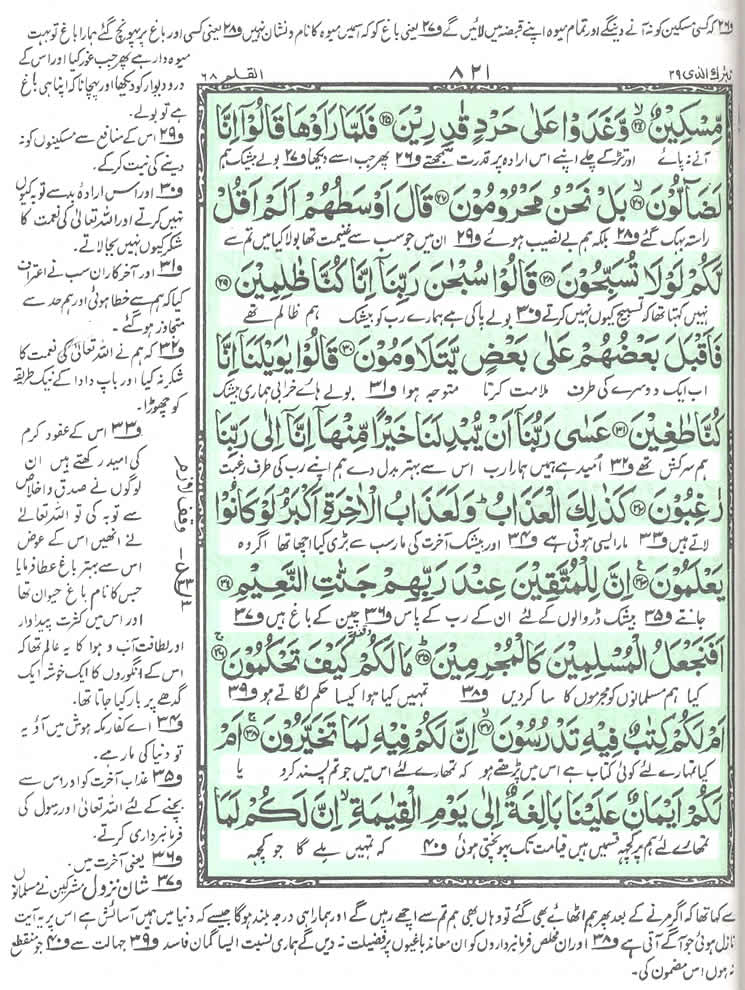 ف۲۶ کہ کسی مسکین کو نہ آنے دینگے اور تمام میوہ اپنے قبضہ میں لائیں گے ف۲۷ یعنی باغ کو کہ اسمیں میوہ کا نام و نشان نہیں ف۲۸ یعنی کسی اور باغ پر پہونچ گئے ہمارا باغ تو بہت
میوہ دار ہے پھر جب غور کیا اور اس کے
در و دیوار کو دیکھا اور پہچانا کہ اپنا ہی باغ
ہے تو بولے۔
ف۲۹ اس کے منافع سے مسکینوں کو نہ
دینے کی نیت کرکے۔
ف۳۰ اور اس ارادۂ بد سے توبہ کیوں
نہیں کرتے اور اللہ تعالٰی کی نعمت کا
شکر کیوں نہیں بجالاتے۔
ف۳۱ اور آخر کار ان سب نے اعتراف
کیا کہ ہم سے خطا ہوئی اور ہم حد سے
متجاوز ہوگئے۔
ف۳۲ کہ ہم نے اللہ تعالٰی کی نعمت کا
شکر نہ کیا اور باپ دادا کے نیک طریقہ
کو چھوڑا۔
ف۳۳ اس کے عفو و کرم
کی امید رکھتے ہیں ان
لوگوں نے صدق و اخلاص
سے توبہ کی تو اللہ تعالٰے
نے انھیں اس کے عوض
اس سے بہتر باغ عطا فرمایا
جس کا نام باغ حیوان تھا
اور اس میں کثرت پیداوار
اور لطافت آب و ہوا کا یہ عالم تھا کہ
اس کے انگوروں کا ایک خوشہ ایک
گدھے پر بار کیا جاتا تھا۔
ف۳۴ اے کفار مکہ ہوش میں آؤ یہ
تو دنیا کی مار ہے۔
ف۳۵ عذاب آخرت کو اور اس سے
بچنے کے لئے اللہ تعالٰی اور رسول کی
فرمانبرداری کرتے۔
ف۳۶ یعنی آخرت میں۔
ف۳۷ شان نزول مشرکین نے مسلمانوں
تبٰرك الذی ۲۹
۸۲۱
القلم ۶۸
مِّسْكِيْنٌ ۙ﴿۲۴﴾ وَّغَدَوْا عَلٰى حَرْدٍ قٰدِرِيْنَ ﴿۲۵﴾ فَلَمَّا رَاَوْهَا قَالُوْۤا اِنَّا
آنے نہ پائے اور تڑکے چلے اپنے اس ارادہ پر قدرت سمجھتے ف۲۶ پھر جب اسے دیکھا ف۲۷ بولے بیشک ہم
لَضَآلُّوْنَ ۙ﴿۲۶﴾ بَلْ نَحْنُ مَحْرُوْمُوْنَ ﴿۲۷﴾ قَالَ اَوْسَطُهُمْ اَلَمْ اَقُلْ
راستہ بہک گئے ف۲۸ بلکہ ہم بے نصیب ہوئے ف۲۹ ان میں جو سب سے غنیمت تھا بولا کیا میں تم سے
لَّكُمْ لَوْلَا تُسَبِّحُوْنَ ﴿۲۸﴾ قَالُوْا سُبْحٰنَ رَبِّنَاۤ اِنَّا كُنَّا ظٰلِمِيْنَ ﴿۲۹﴾
نہیں کہتا تھا کہ تسبیح کیوں نہیں کرتے ف۳۰ بولے پاکی ہے ہمارے رب کو بیشک ہم ظالم تھے
فَاَقْبَلَ بَعْضُهُمْ عَلٰى بَعْضٍ يَّتَلَاوَمُوْنَ ﴿۳۰﴾ قَالُوْا يٰوَيْلَنَاۤ اِنَّا
اب ایک دوسرے کی طرف ملامت کرتا متوجہ ہوا ف۳۱ بولے ہائے خرابی ہماری بیشک
كُنَّا طٰغِيْنَ ﴿۳۱﴾ عَسٰى رَبُّنَاۤ اَنْ يُّبْدِلَنَا خَيْرًا مِّنْهَاۤ اِنَّاۤ اِلٰى رَبِّنَا
ہم سرکش تھے ف۳۲ اُمید ہے ہمیں ہمارا رب اس سے بہتر بدل دے ہم اپنے رب کی طرف رغبت
رٰغِبُوْنَ ﴿۳۲﴾ كَذٰلِكَ الْعَذَابُ ؕ وَلَعَذَابُ الْاٰخِرَةِ اَكْبَرُ ۘ لَوْ كَانُوْا
لاتے ہیں ف۳۳ مار ایسی ہوتی ہے ف۳۴ اور بیشک آخرت کی مار سب سے بڑی کیا اچھا تھا اگر وہ
يَعْلَمُوْنَ ﴿۳۳﴾ اِنَّ لِلْمُتَّقِيْنَ عِنْدَ رَبِّهِمْ جَنّٰتِ النَّعِيْمِ ﴿۳۴﴾
جانتے ف۳۵ بیشک ڈر والوں کے لئے ان کے رب کے پاس ف۳۶ چین کے باغ ہیں ف۳۷
اَفَنَجْعَلُ الْمُسْلِمِيْنَ كَالْمُجْرِمِيْنَ ﴿۳۵﴾ مَا لَكُمْ كَيْفَ تَحْكُمُوْنَ ﴿۳۶﴾
کیا ہم مسلمانوں کو مجرموں کا سا کردیں ف۳۸ تمہیں کیا ہوا کیسا حکم لگاتے ہو ف۳۹
اَمْ لَكُمْ كِتٰبٌ فِيْهِ تَدْرُسُوْنَ ﴿۳۷﴾ اِنَّ لَكُمْ فِيْهِ لَمَا تَخَيَّرُوْنَ ﴿۳۸﴾ اَمْ
کیا تمہارے لئے کوئی کتاب ہے اس میں پڑھتے ہو کہ تمھارے لئے اس میں جو تم پسند کرو یا
لَكُمْ اَيْمَانٌ عَلَيْنَا بَالِغَةٌ اِلٰى يَوْمِ الْقِيٰمَةِ ۙ اِنَّ لَكُمْ لَمَا
تمھارے لئے ہم پر کچھ قسمیں ہیں قیامت تک پہونچتی ہوئی ف۴۰ کہ تمہیں ملے گا جو کچھ
سے کہا تھا کہ اگر مرنے کے بعد پھر ہم اٹھائے بھی گئے تو وہاں بھی ہم تم سے اچھے رہیں گے اور ہمارا ہی درجہ بلند ہوگا جیسے کہ دنیا میں ہمیں آسائش ہے اس پر یہ آیت
نازل ہوئی جو آگے آتی ہے ف۳۸ اور ان مخلص فرمانبرداروں کو ان معاند باغیوں پر فضیلت نہ دیں گے ہماری نسبت ایسا گمان فاسد ف۳۹ جہالت سے ف۴۰ جو منقطع
نہ ہوں اس مضمون کی۔